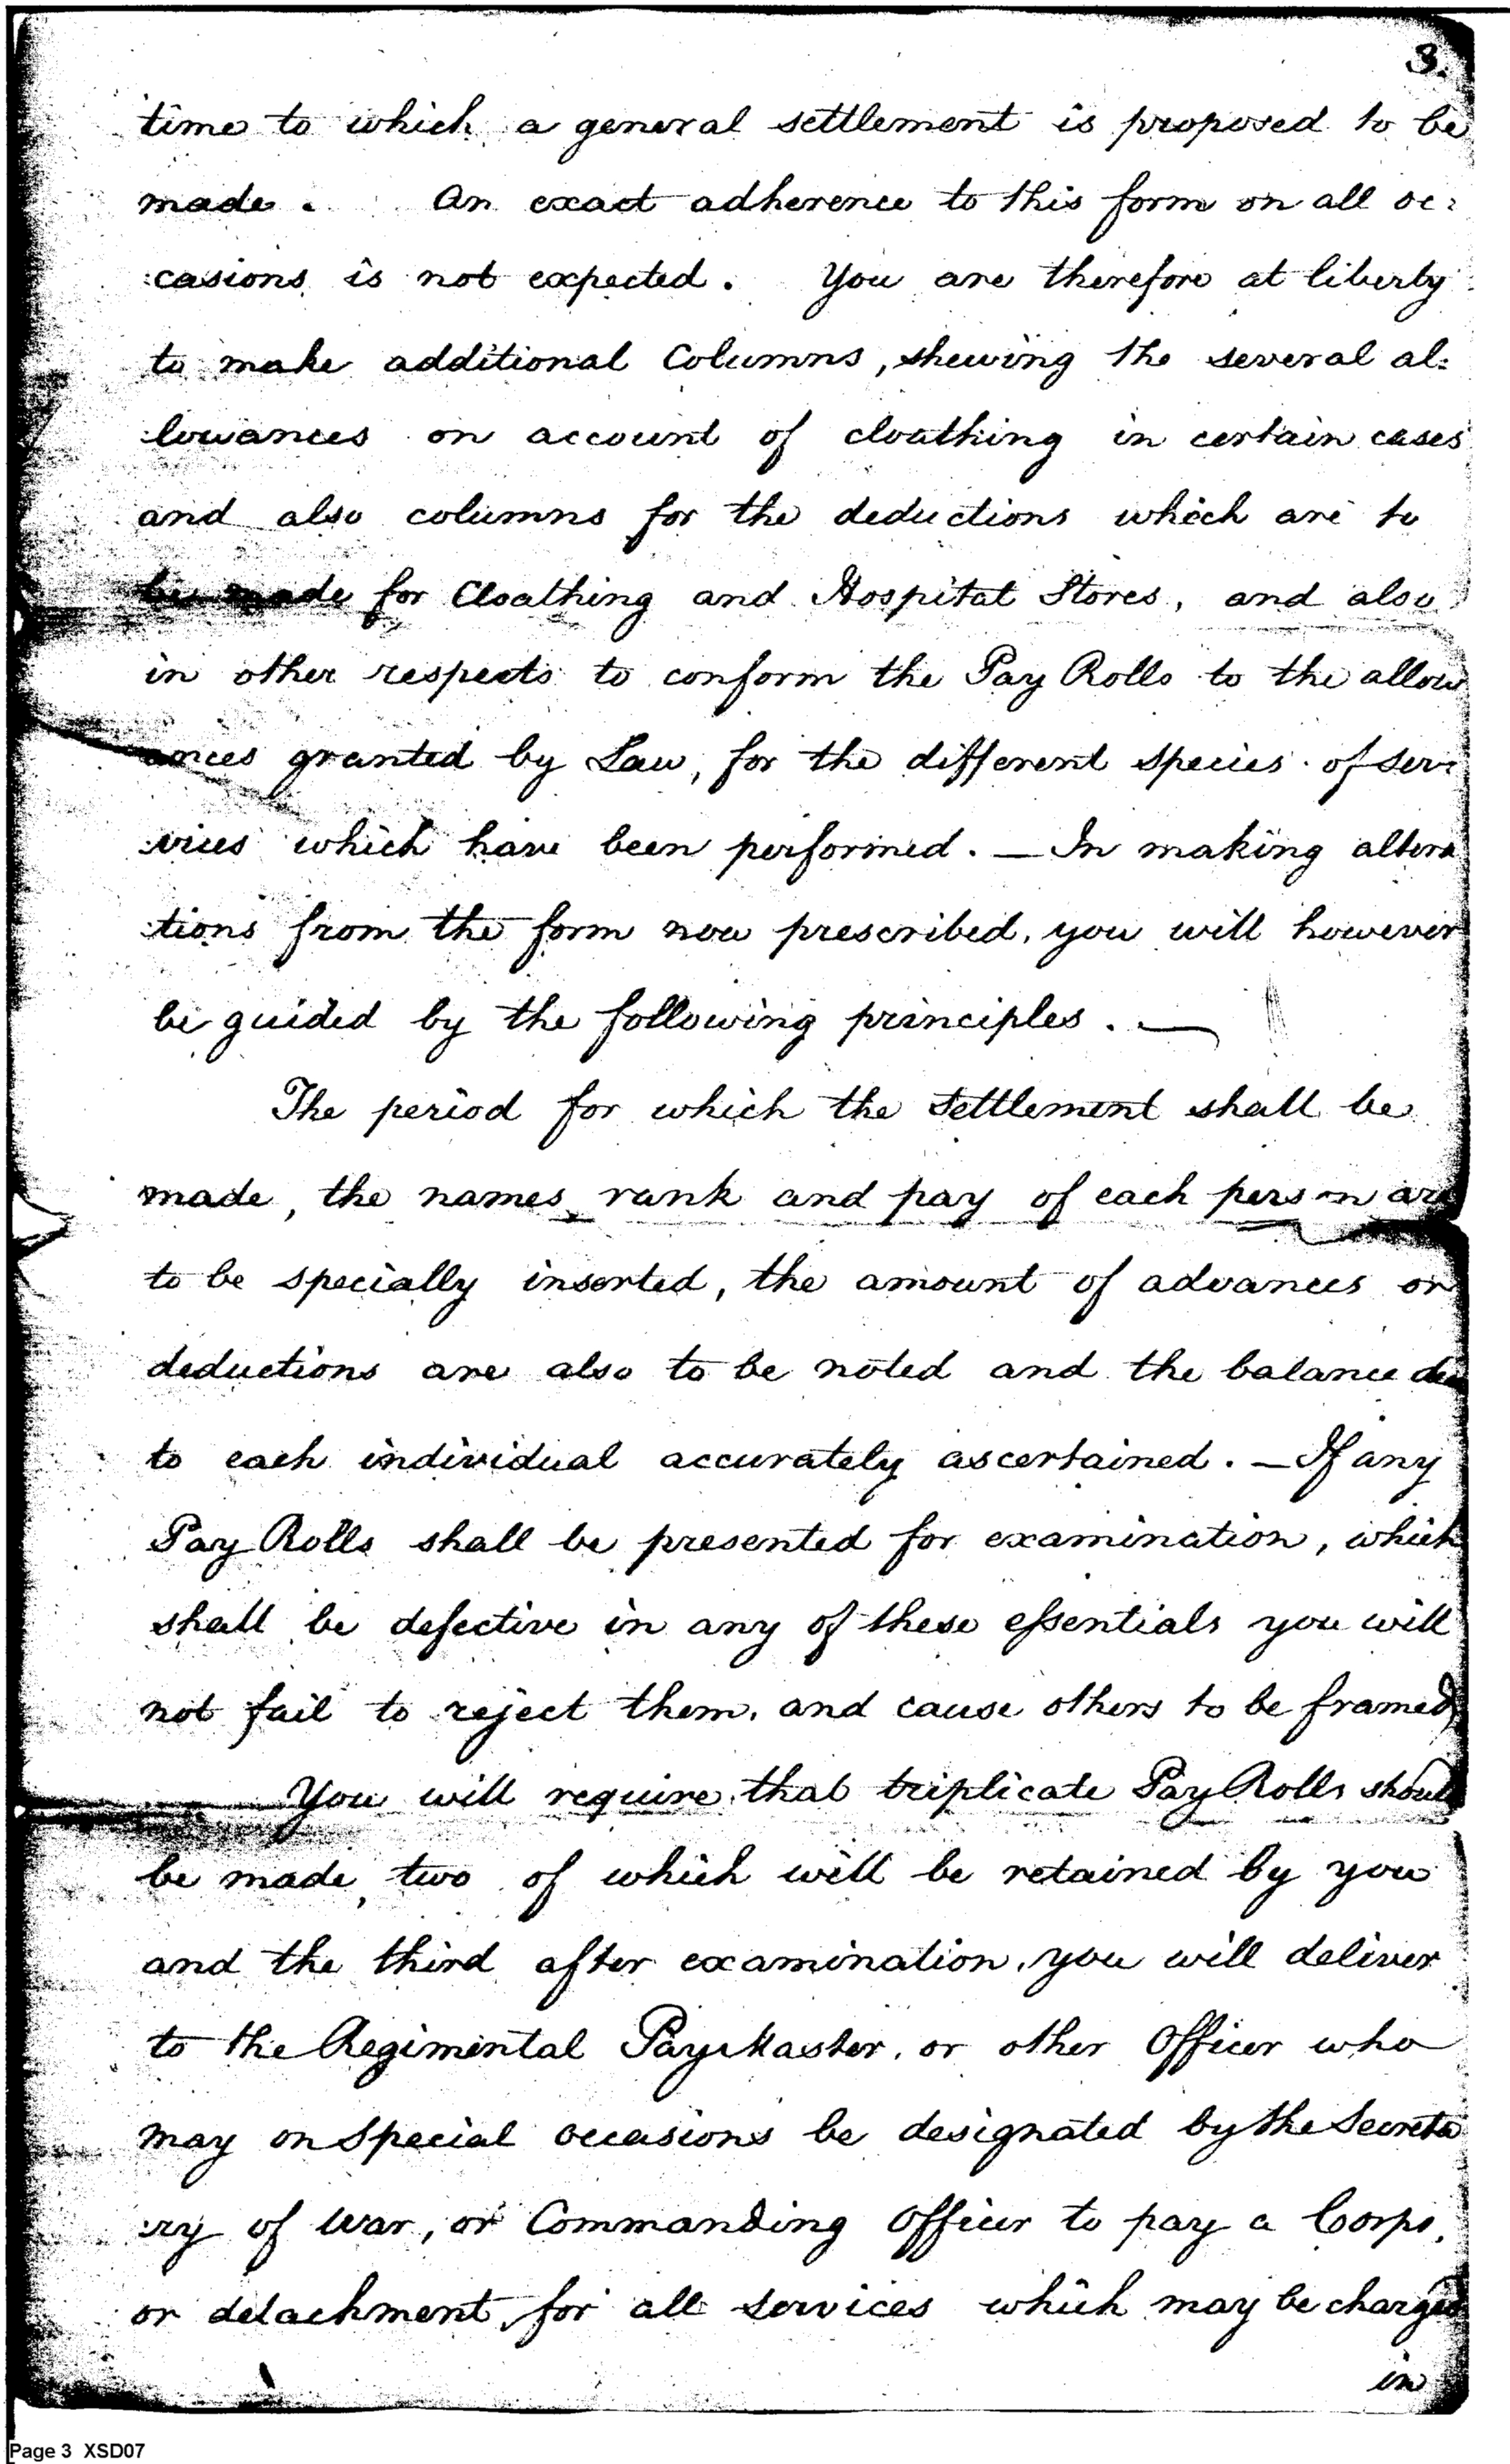 3.
time to which a general settlement is proposed to be
made. An exact adherence to this form on all oc:
:casions is not expected. You are therefore at liberty
to make additional Columns, shewing the several al:
:lowances on account of cloathing in certain cases
and also columns for the deductions which are to
be made for Cloathing and Hospital Stores, and also
in other respects to conform the Pay Rolls to the allow
ances granted by Law, for the different species of ser:
:vices which have been performed. — In making altera
:tions from the form now prescribed, you will however
be guided by the following principles. —
The period for which the settlement shall be
made, the names, rank and pay of each person are
to be specially inserted, the amount of advances or
deductions are also to be noted and the balance due
to each individual accurately ascertained. — If any
Pay Rolls shall be presented for examination, which
shall be defective in any of these essentials you will
not fail to reject them, and cause others to be framed,
You will require that triplicate Pay Rolls should
be made, two of which will be retained by you
and the third after examination, you will deliver
to the Regimental PayMaster, or other Officer who
may on Special occasions be designated by the Secreta
:ry of War, or Commanding Officer to pay a Corps,
or detachment, for all services which may be charged
in
Page 3 XSD07